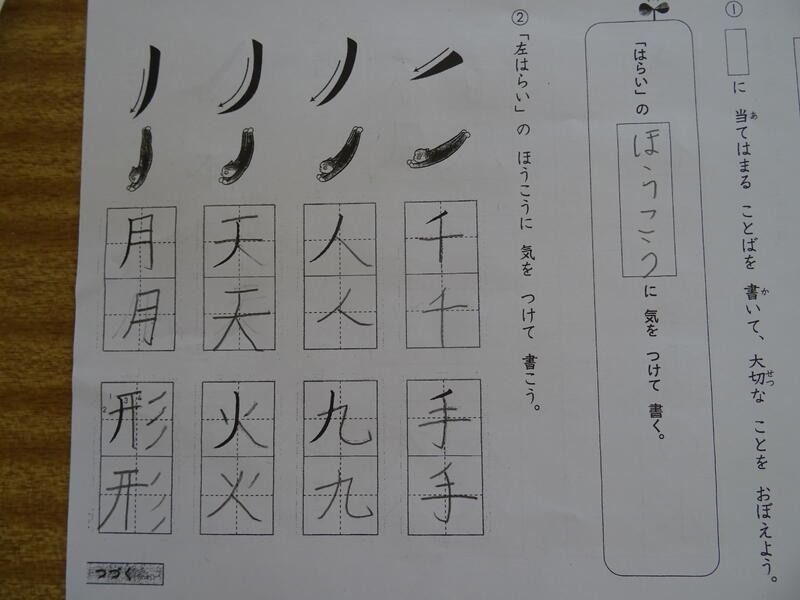 ①
□に 当てはまる ことばを 書いて、大切な ことを おぼえよう。
あ
か
せつ
「はらい」の ほうこう に 気を つけて 書く。
②「左はらい」の ほうこうに 気を つけて 書こう。
千
千
手
手
人
人
九
九
天
天
火
火
月
月
形
形
つづく